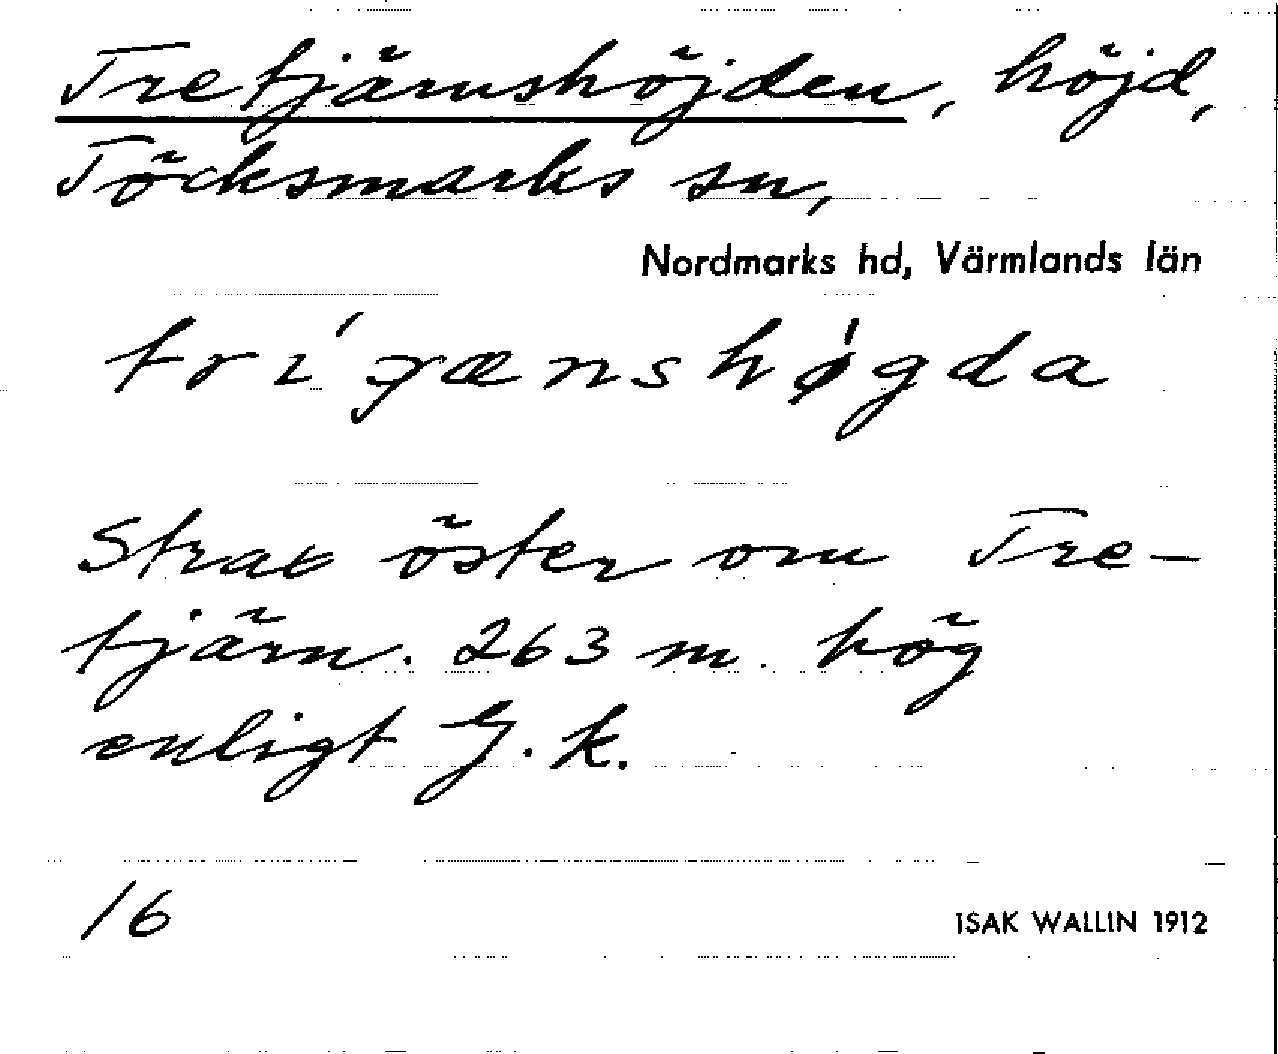 Tretjärnshöjden, höjd,
Töcksmarks sn,
Nordmarks hd, Värmlands län
trí'ɟænshø̀gda
Strax öster om Tre-
tjärn. 263 m. hög
enligt G. k.
16
ISAK WALLIN 1912